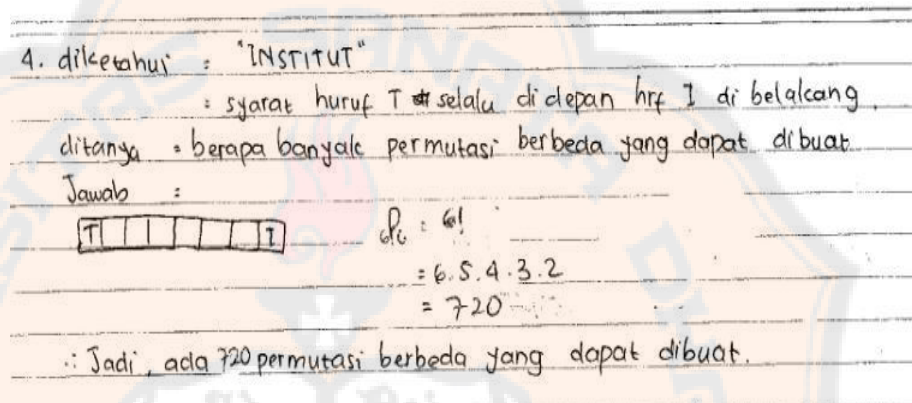 4. diketahui : "INSTITUT"
: syarat huruf T selalu di depan hrf I di belakang.
ditanya : berapa banyak permutasi berbeda yang dapat dibuat
Jawab :
T I
6P6 : 6!
= 6.5.4.3.2
= 720
∴ Jadi, ada 720 permutasi berbeda yang dapat dibuat.